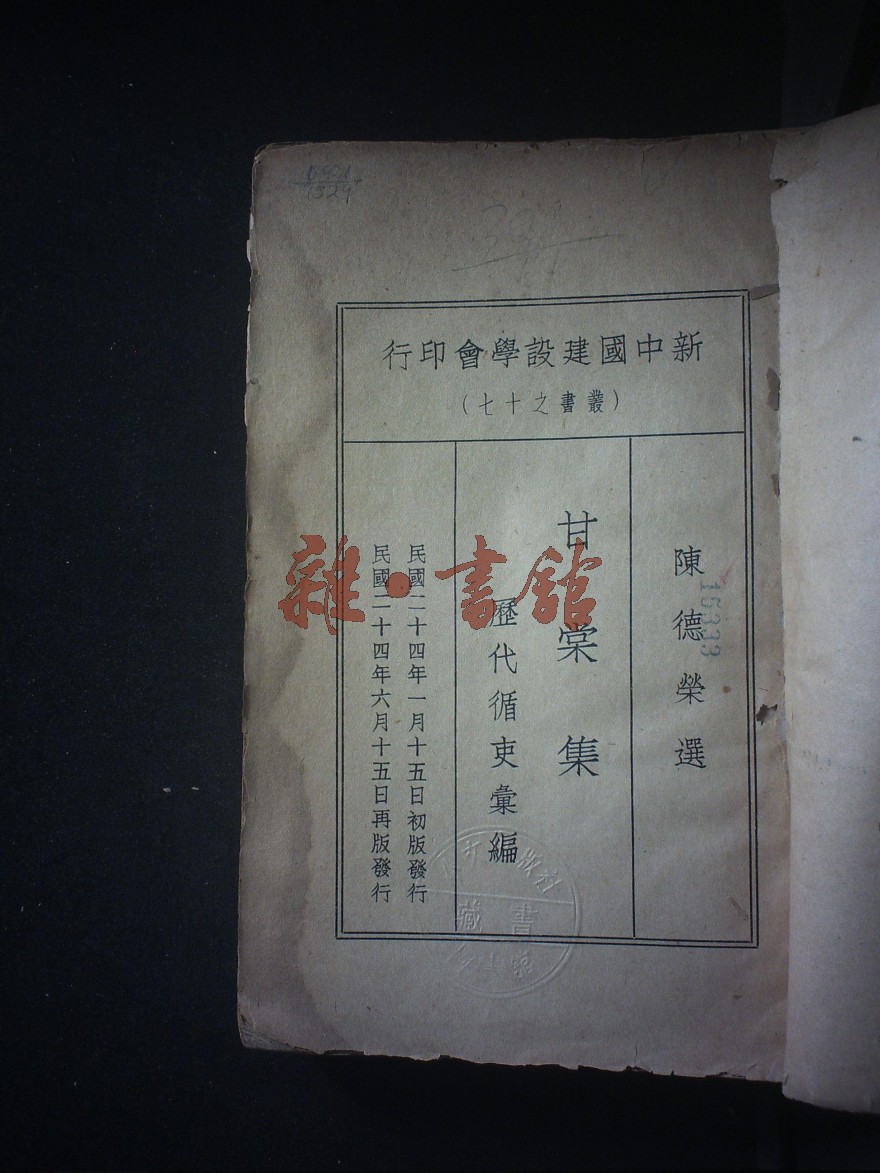 新中國建設學會印行
（叢書之十七）
陳德榮選
甘棠集
歷代循吏彙編
民國二十四年一月十五日初版發行
民國二十四年六月十五日再版發行
15333
雜·書館
書藏